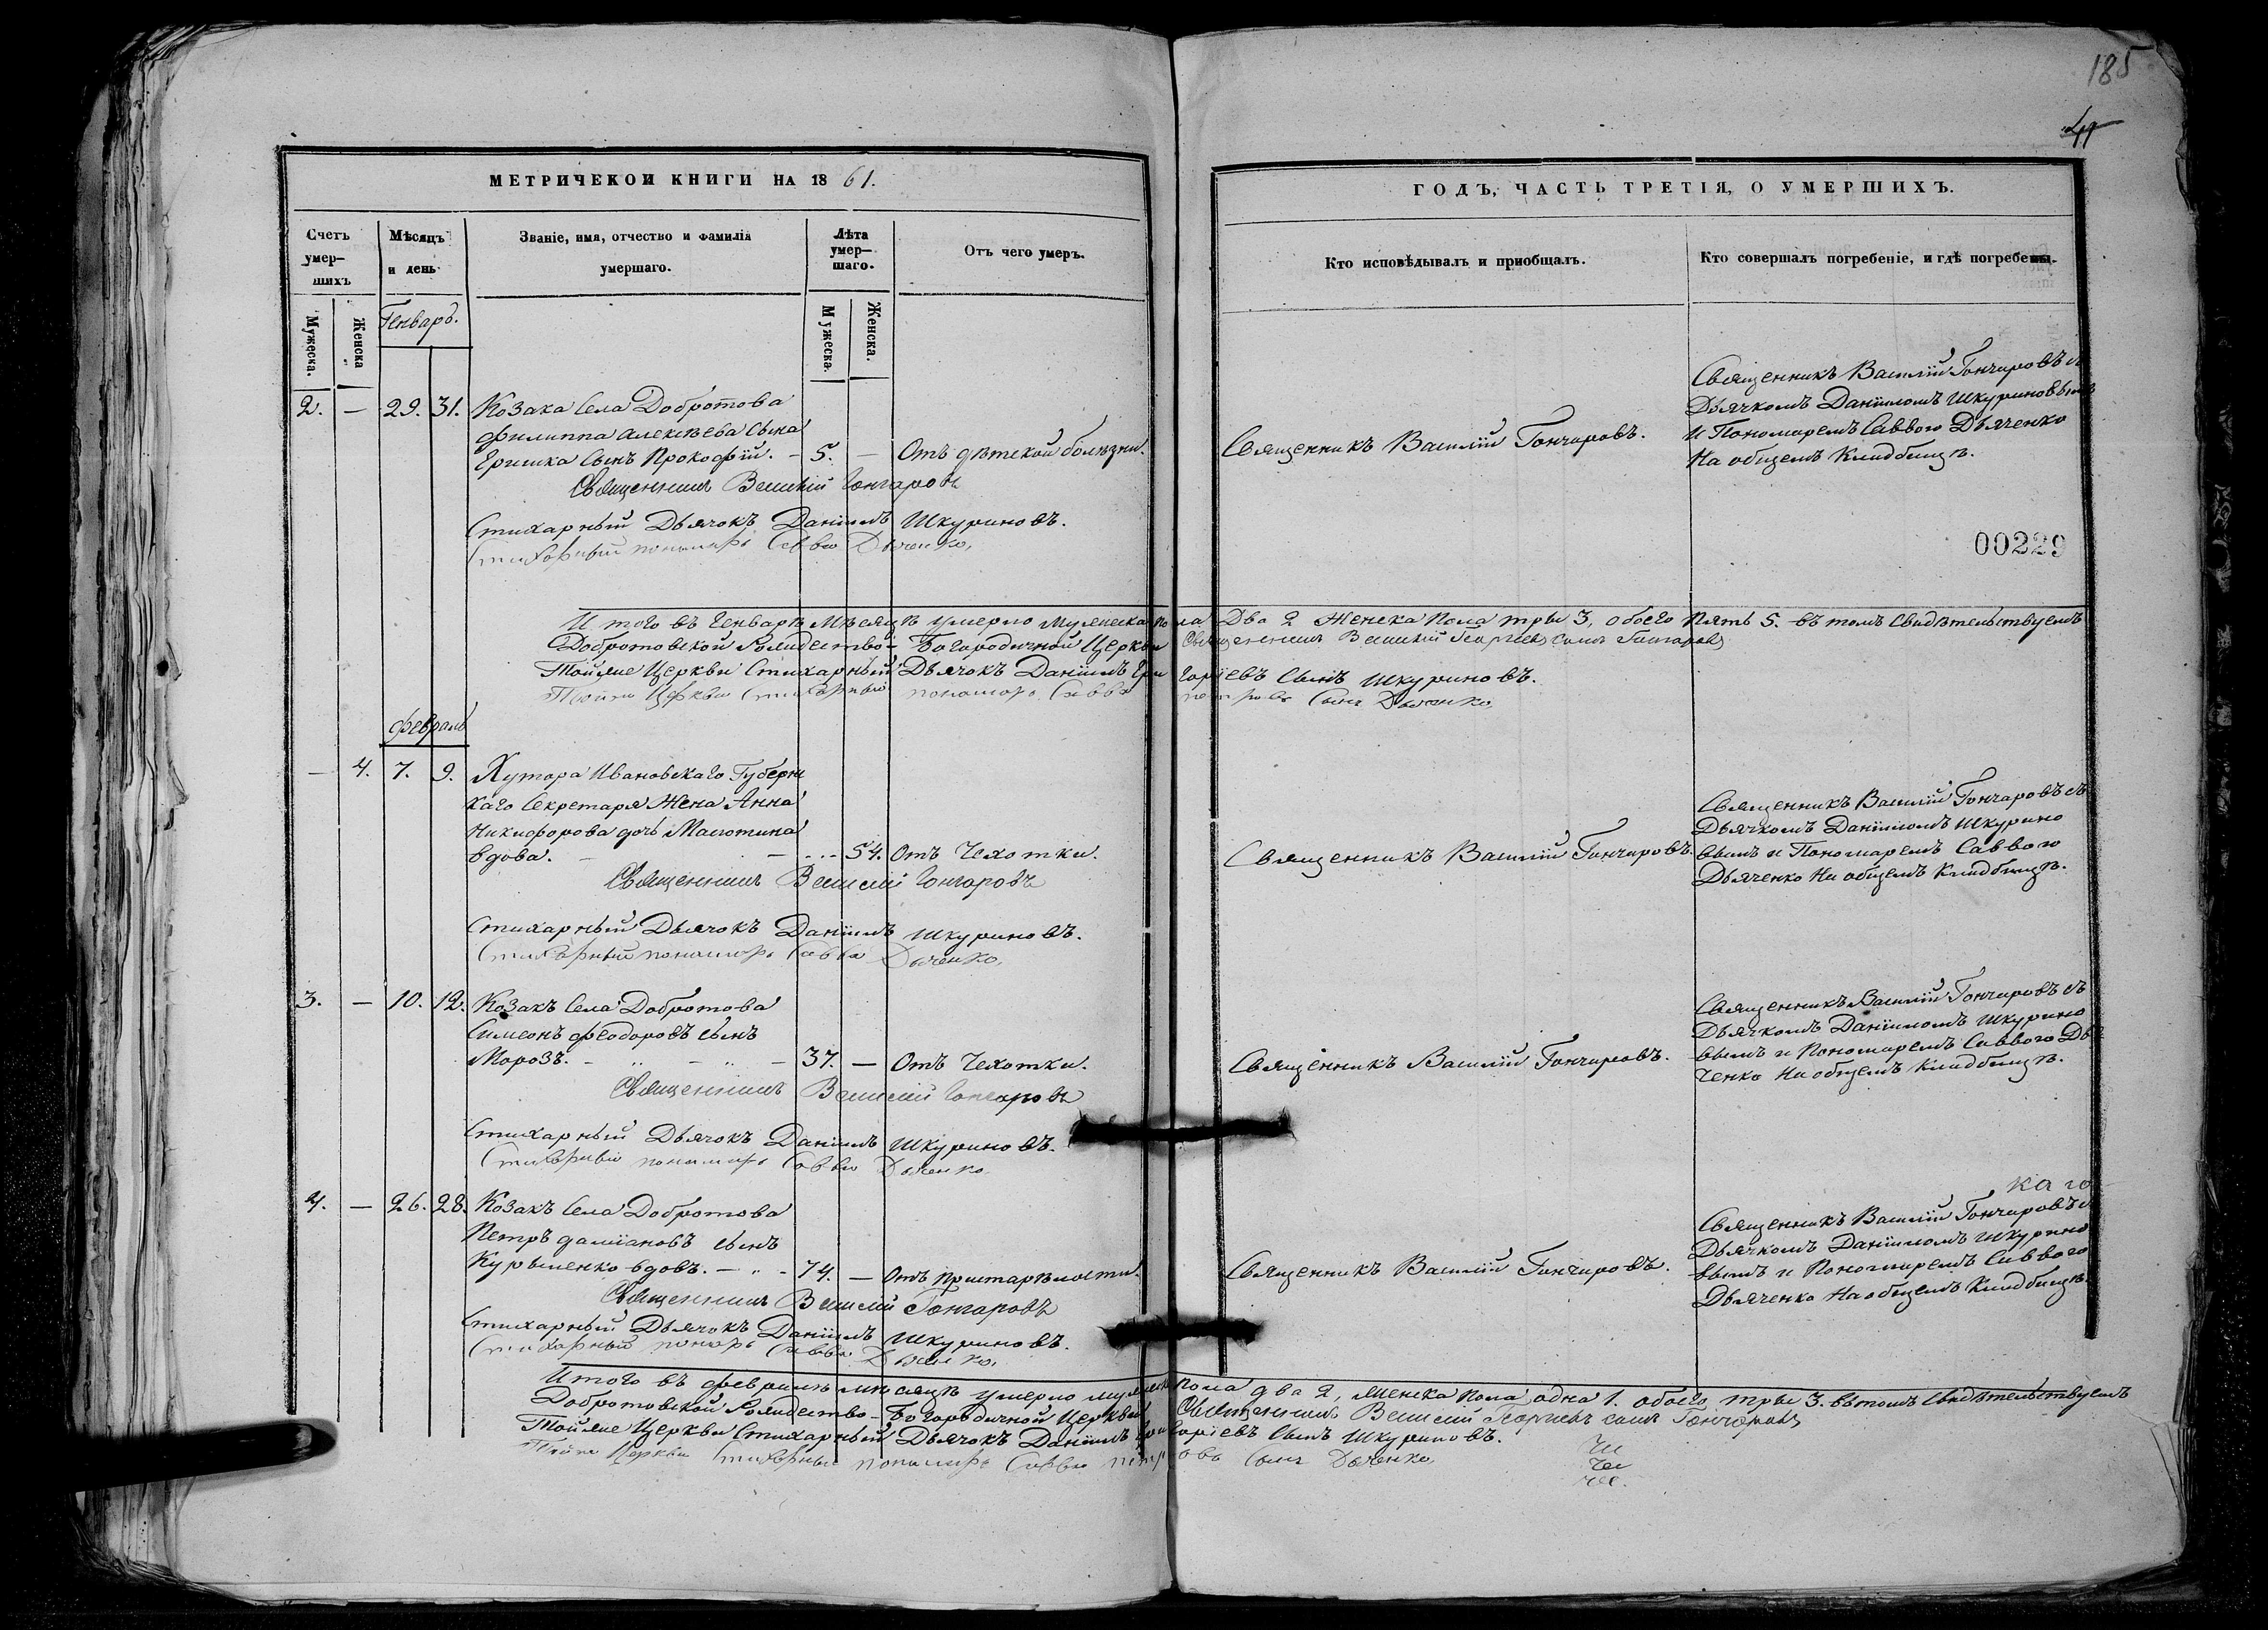 185
МЕТРИЧЕКОИ КНИГИ НА 18 61.
Счетъ умер-шихъ
Мѣсяцъ и день
Званіе, имя, отчество и фамилія умершаго.
Лѣта умер-шаго.
Отъ чего умеръ.
Мужеска.
Женска
Генварь.
Мужеска.
Женска.
2. — 29. 31. Козака Села Добротова
Филиппа Алексѣева Сына
Ершика Сынъ Прокофій. - 5. — Отъ дѣтской болѣзни.
Священникъ Василій Гончаровъ
Стихарный Дьячокъ Даніилъ Шкуриновъ.
Стихарный пономарь Савва Дяченко,
Итого въ Генварѣ Мѣсяцѣ умерло Мужеска пола Два 2 Женска Пола три 3, обоего Пять 5. въ томъ Свидѣтельствуемъ
Добротовской Рождество-Богородичной Церкви Священникъ Василій Георгіевъ сынъ Гончаровъ
Тойже Церкви Стихарный Дьячокъ Даніилъ Григоріевъ Сынъ Шкуриновъ.
Тойже Церкви Стихарный пономарь Савва петровъ Сынъ Дяченко,
Февраль
— 4. 7. 9. Хутора Ивановскаго Губерн
скаго Секретаря Жена Анна
Никифорова дочь
вдова. — 54. Отъ Чахотки.
Священникъ Василій Гончаровъ
Стихарный Дьячокъ Даніилъ Шкуриновъ.
Стихарный пономарь Савва Дяченко,
3. — 10. 12. Козакъ Села Добротова
Симеонъ Феодоровъ сынъ
Морозъ. — 37. — Отъ Чахотки.
Священникъ Василій Гончаровъ
Стихарный Дьячокъ Даніилъ Шкуриновъ.
Стихарный пономарь Савва Дяченко
4. — 26. 28. Козакъ Села Добротова
Петръ Даміановъ сынъ
Курыленко вдовъ. — 74. — Отъ Пристарѣлости.
Священникъ Василій Гончаровъ
Стихарный Дьячокъ Даніилъ Шкуриновъ.
Стихарный понарь Савва Дяченко,
Итого въ Февралѣ мѣсяцѣ умерло мужеска пола два 2, женска пола одна 1. обоего три 3. въ томъ Свидѣтельствуемъ
Добротовской Рождество-Богородичной Церкви Священникъ Василій Георгіевъ сынъ Гончаровъ
Тойже Церкви Стихарный Дьячокъ Даніилъ Григоріевъ Сынъ Шкуриновъ.
Тойже Церкви Стихарный пономарь Савва петровъ Сынъ Дяченко,
ГОДЪ, ЧАСТЬ ТРЕТІЯ, О УМЕРШИХЪ.
Кто исповѣдывалъ и пріобщалъ.
Кто совершалъ погребеніе, и гдѣ погребены.
Священникъ Василій Гончаровъ.
Священникъ Василій Гончаровъ съ
Дьячкомъ Даніиломъ Шкуриновымъ
и Пономаремъ Саввою Дьяченко
На общемъ Кладбищѣ.
00229
Священникъ Василій Гончаровъ.
Священникъ Василій Гончаровъ съ
Дьячкомъ Даніиломъ Шкурино
вымъ и Пономаремъ Саввою
Дьяченко На общемъ Кладбищѣ.
Священникъ Василій Гончаровъ.
Священникъ Василій Гончаровъ съ
Дьячкомъ Даніиломъ Шкурино
вымъ и Пономаремъ Саввою Дья
ченко На общемъ Кладбищѣ.
каго
Священникъ Василій Гончаровъ.
Священникъ Василій Гончаровъ с
Дьячкомъ Даніиломъ Шкурино
вымъ и Пономаремъ Саввою
Дьяченко На общемъ Кладбищѣ.